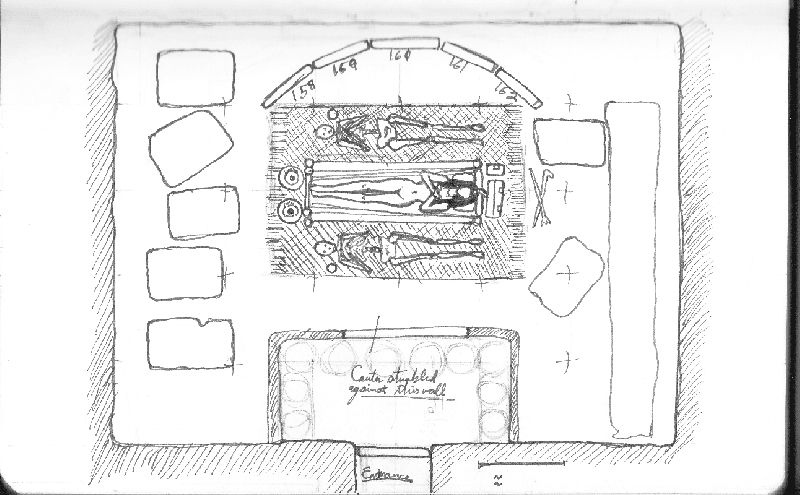 158
159
160
161
162
Carter stumbled
against this wall
Entrance